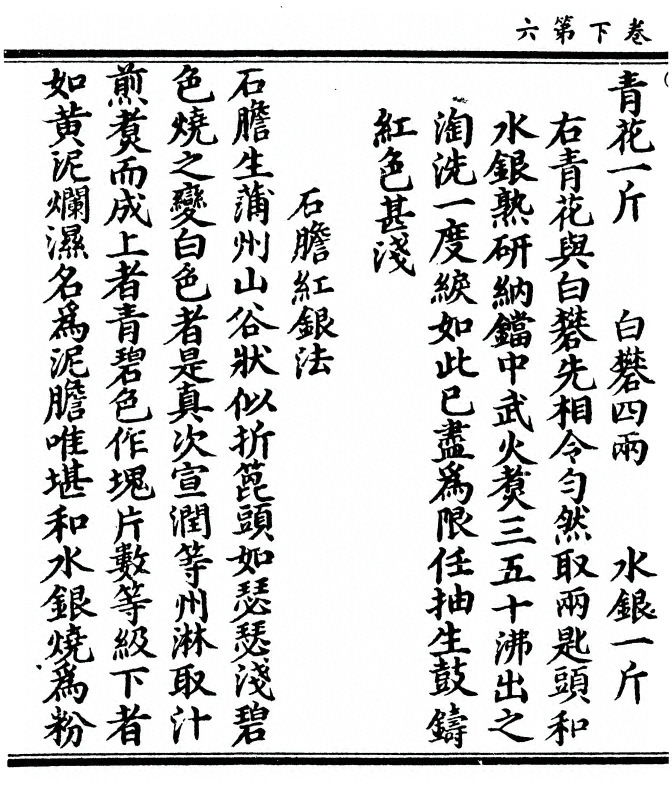 卷下第六
青花一斤　白礬四兩　水銀一斤
右青花與白礬先相令勻然取兩匙頭和
水銀熟研納鐺中武火煑三五十沸出之
淘洗一度緱如此已盡爲限任抽生鼓鑄
紅色甚淺
石膽紅銀法
石膽生蒲州山谷狀似折篦頭如瑟瑟淺碧
色燒之變白色者是真次宣潤等州淋取汁
煎煑而成上者青碧色作塊片數等級下者
如黃泥爛濕名爲泥膽唯堪和水銀燒爲粉